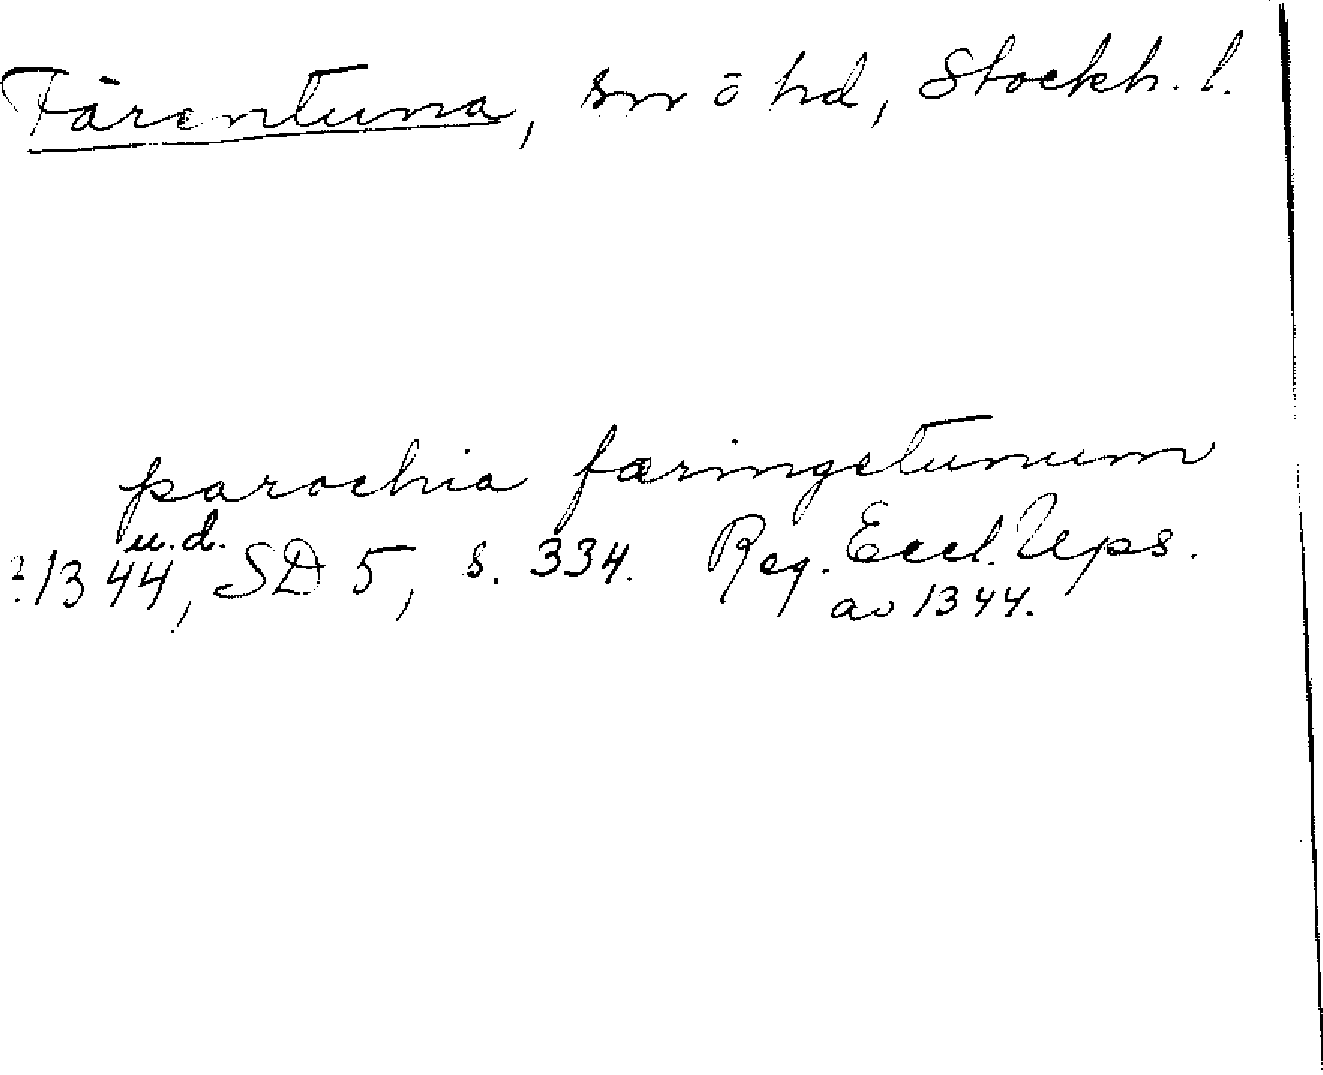 Färentuna, sn o hd, Stockh. l.
parochia færingetunum
u.d.
?1344, SD 5, s. 334. Reg. Eccl. Ups.
av 1344.